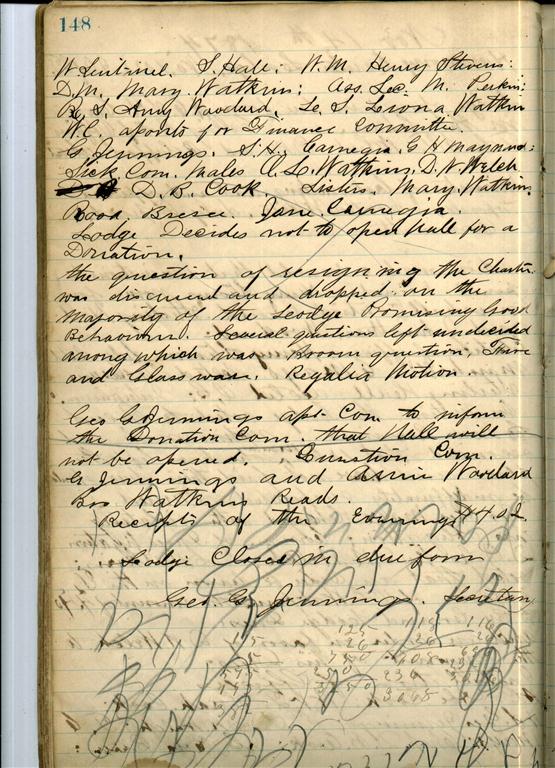 148
W Sentinel. S. Hale. W.M. Henry Stevens:
D.M. Mary Watkins: Ass. Sec. M. Perkins:
R. S. Amy Woodard. L. S. Leona Watkins
W.C. aponts for Finance Committe.
G. Jennings. S.H. Carnegia. G H Maynard:
Sick Com. Males A. L. Watkins, D. N. Welch
D. B. Cook. Sisters. Mary. Watkins
Rosa, Bresee. Jane. Carnegia.
Lodge Decides not to open hall for a
Donation.
the question of resigning the Charter
was discused and dropped on the
Majorety of the Lodge Promising Good
Behaviour. Several qustions left undecided
among which was Broom question,
and Glassware. Regalia Motion.
Geo G Jennings apt Com to inform
the Donation Com. that Hall will
not be opened. Question Com.
G Jennings and Annie Woodard
Bro Watkins Reads.
Recipts of the Evening $4.02
Lodge Closes in due form
Geo. G Jennings. Secretary